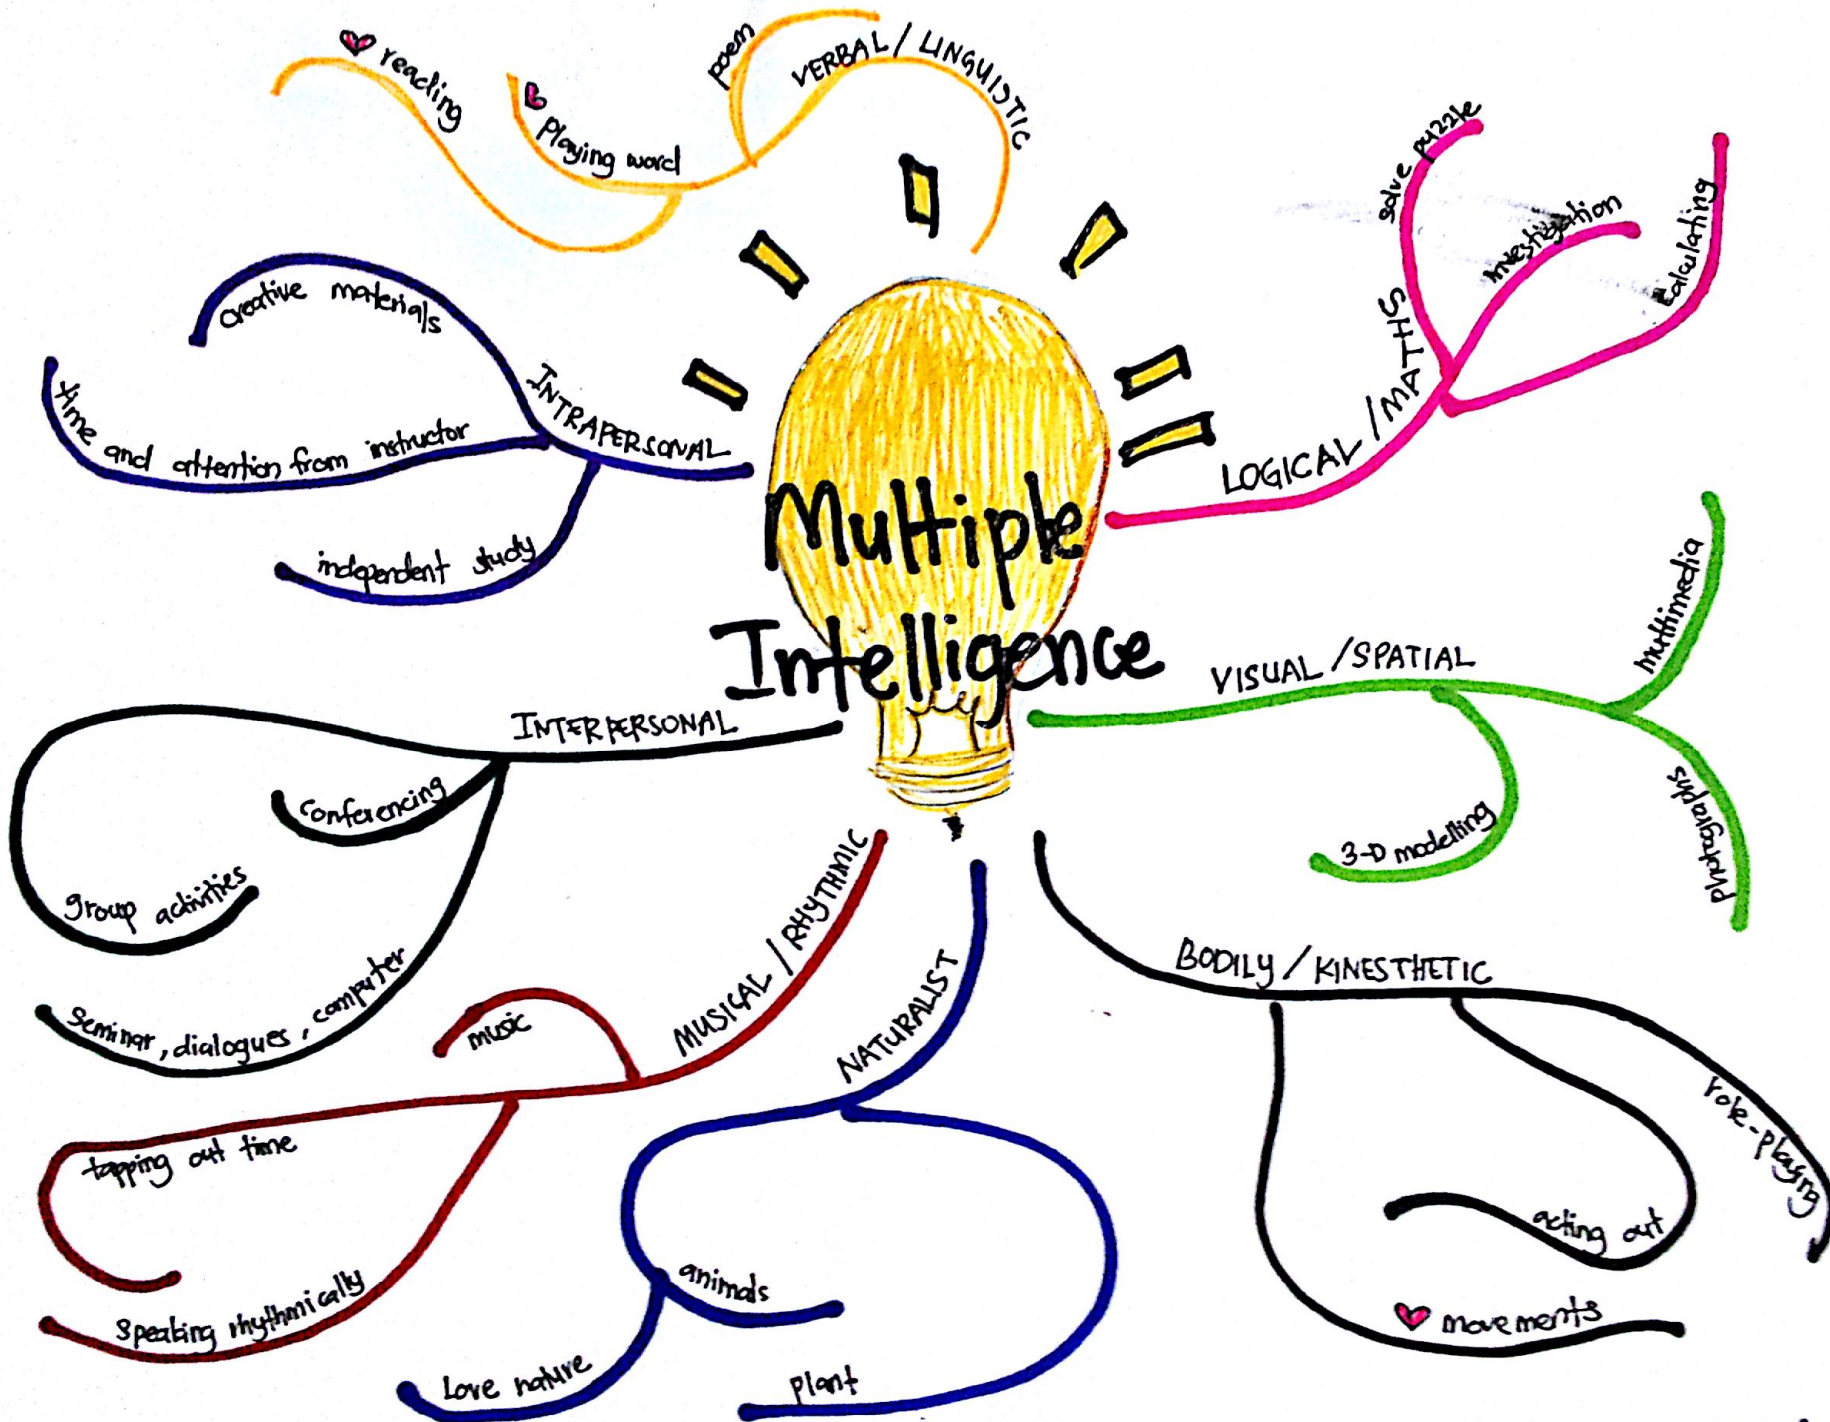 Multiple
Intelligence
VERBAL / LINGUISTIC
poem
playing word
reading
LOGICAL / MATHS
solve puzzle
investigation
calculating
VISUAL / SPATIAL
multimedia
photographs
3-D modelling
BODILY / KINESTHETIC
role-playing
acting out
movements
NATURALIST
animals
love nature
plant
MUSICAL / RHYTHMIC
music
tapping out time
speaking rhythmically
INTERPERSONAL
conferencing
group activities
seminar, dialogues, computer
INTRAPERSONAL
creative materials
time and attention from instructor
independent study